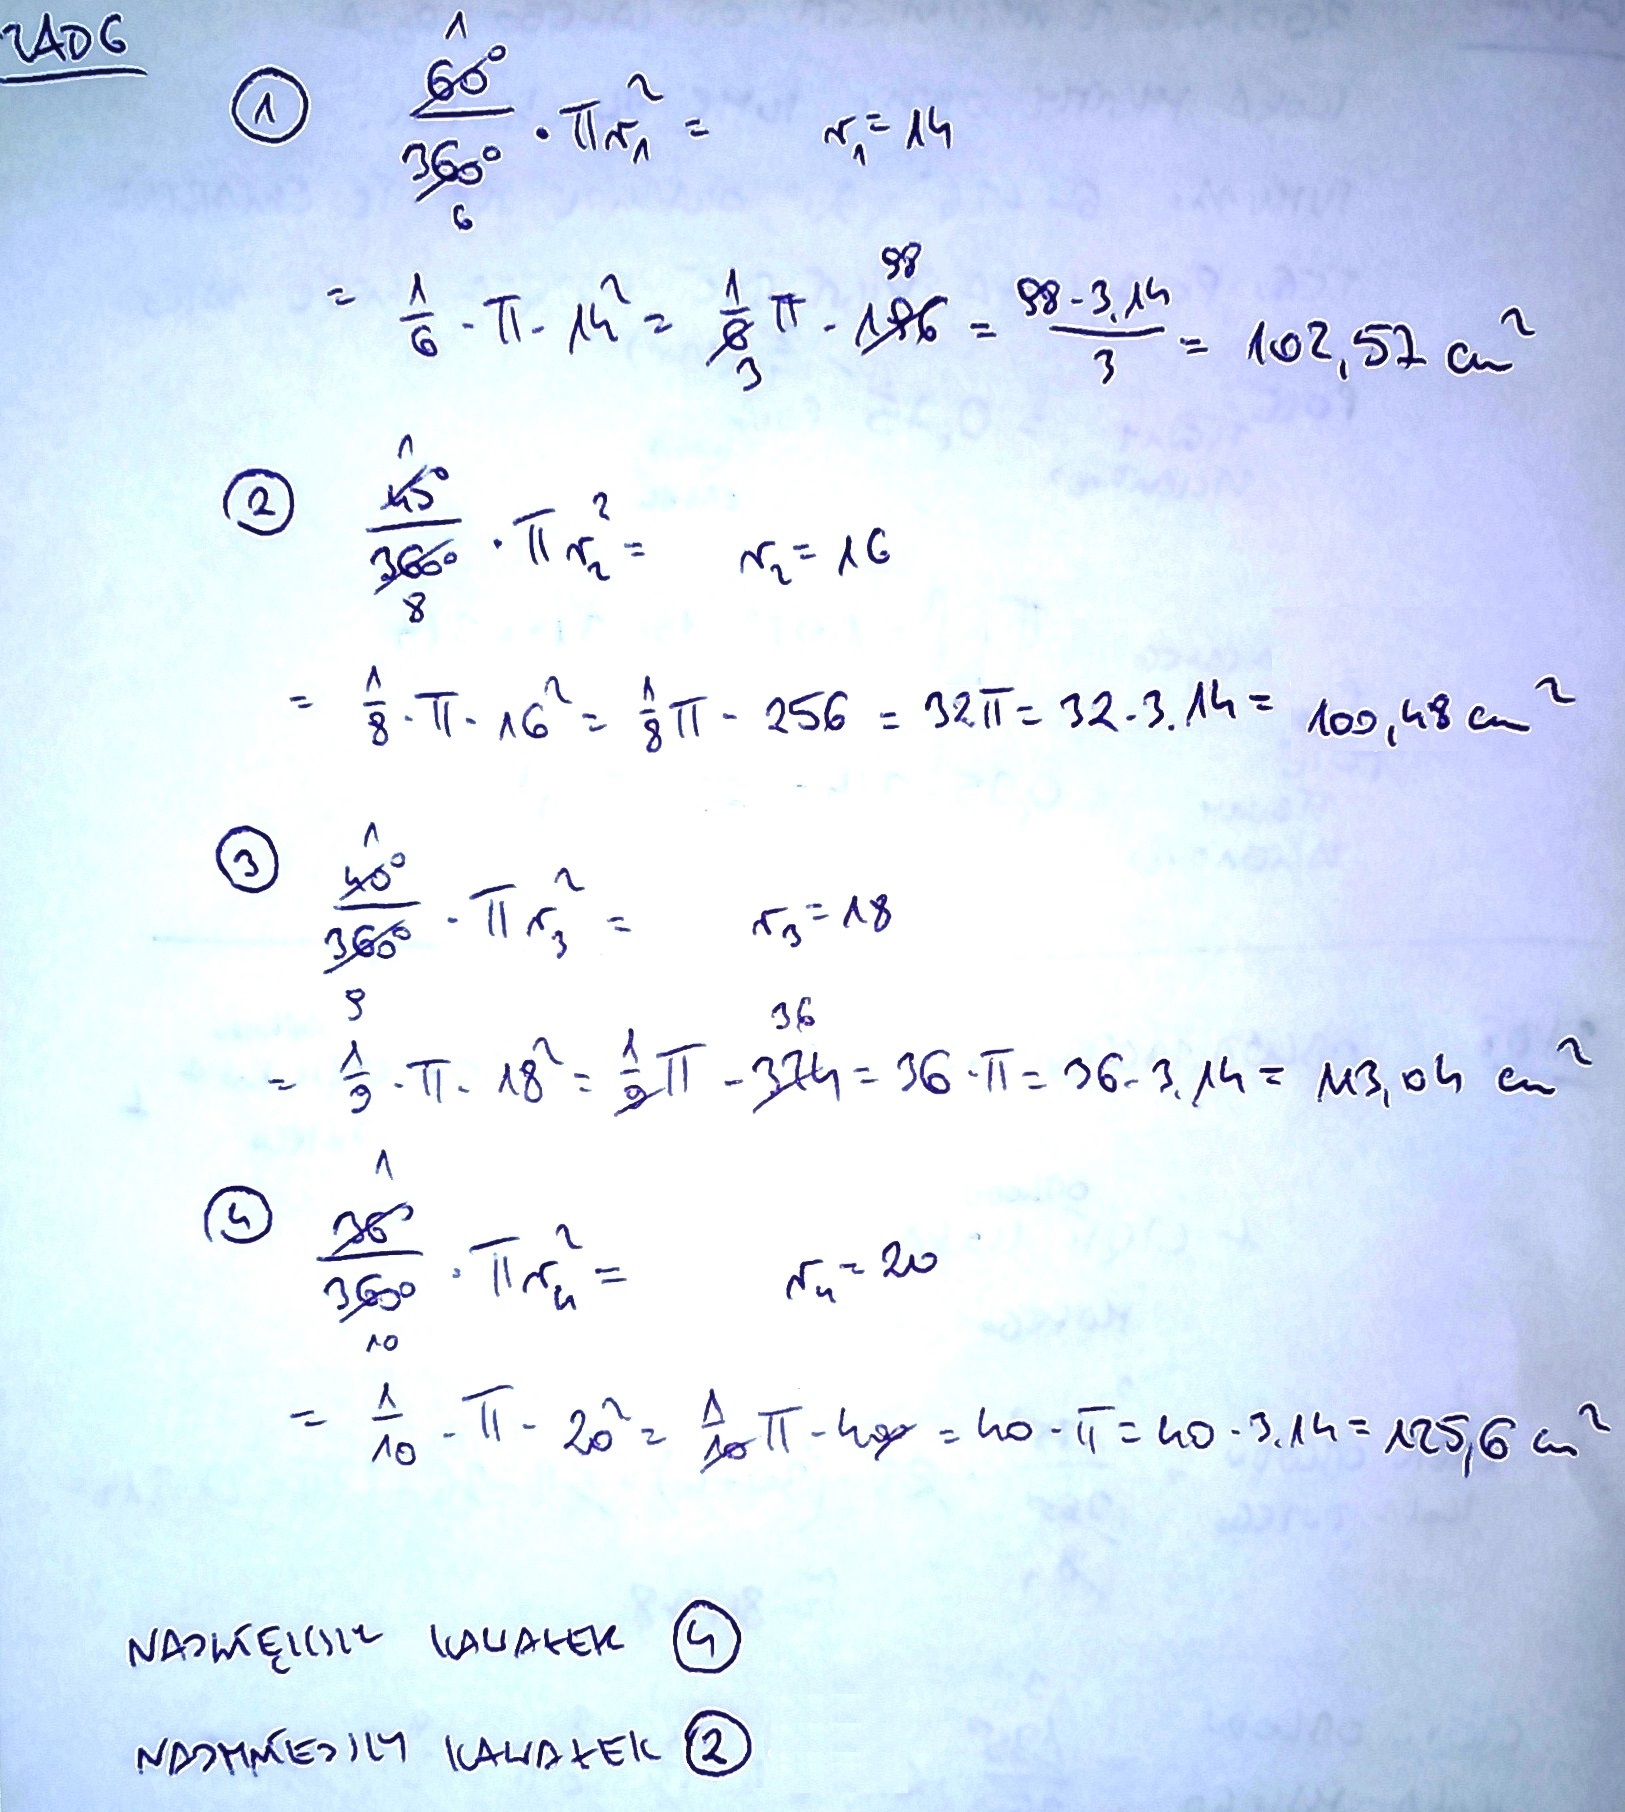 ZAD6
① 1
60°/360° · πr₁² = r₁ = 14
6
= 1/6 · π · 14² = 1/6 π · 196 = 98 · 3,14 / 3 = 102,57 cm²
98
3
② 1
45°/360° · πr₂² = r₂ = 16
8
= 1/8 · π · 16² = 1/8 π · 256 = 32π = 32 · 3,14 = 100,48 cm²
③ 1
40°/360° · πr₃² = r₃ = 18
9
36
= 1/9 · π · 18² = 1/9 π · 324 = 36 · π = 36 · 3,14 = 113,04 cm²
④ 1
36°/360° · πr₄² = r₄ = 20
10
= 1/10 · π · 20² = 1/10 π · 400 = 40 · π = 40 · 3,14 = 125,6 cm²
NAJWIĘKSZY KAWAŁEK ④
NAJMNIEJSZY KAWAŁEK ②